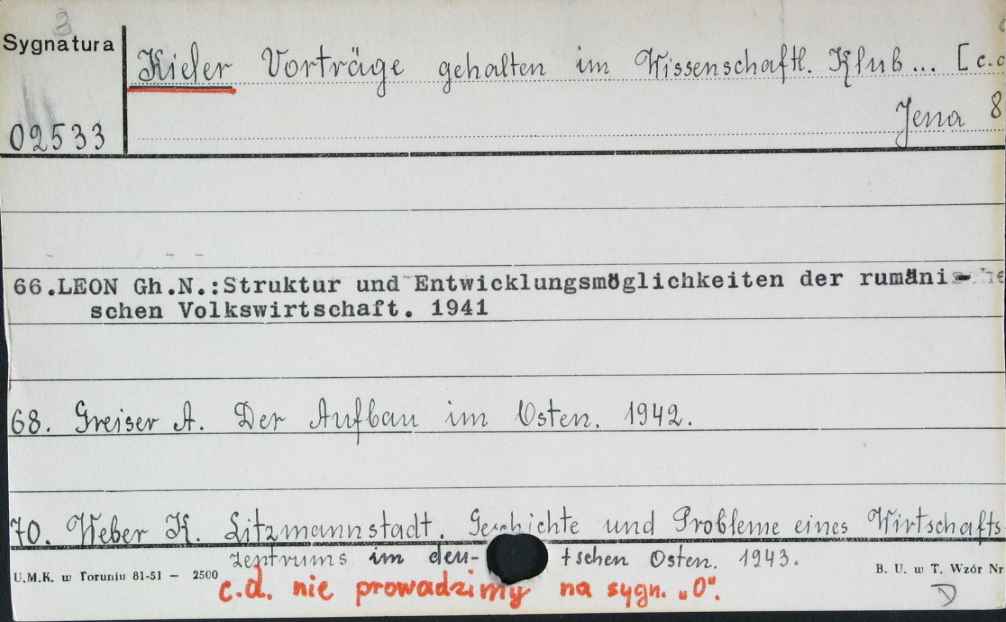 3
Sygnatura
Kieler Vorträge gehalten im Wissenschaftl. Klub... [c.
Jena 8
02533
66.LEON Gh.N.:Struktur und Entwicklungsmöglichkeiten der rumäni-
schen Volkswirtschaft. 1941
68. Greiser A. Der Aufbau im Osten. 1942.
70. Weber K. Litzmannstadt. Geschichte und Probleme eines Wirtschafts-
zentrums im deu- tschen Osten. 1943.
U.M.K. w Toruniu 81-51 — 2500
B. U. w T. Wzór Nr
c.d. nie prowadzimy na sygn. „0".
D